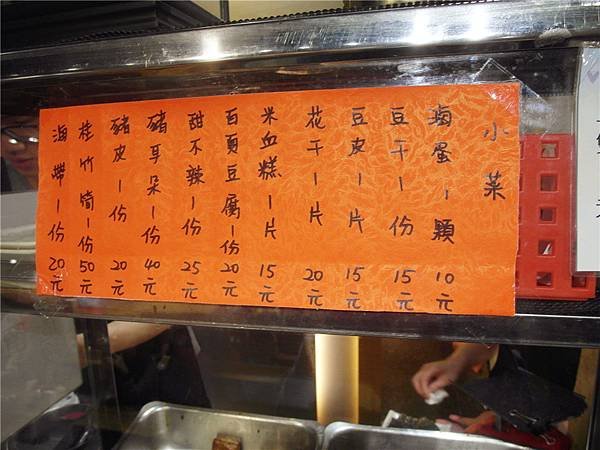 小菜
滷蛋一顆 10元
豆干一份 15元
豆皮一片 15元
花干一片 20元
米血糕一片 15元
百頁豆腐一份 20元
甜不辣一份 25元
豬耳朵一份 40元
豬皮一份 20元
桂竹筍一份 50元
海帶一份 20元